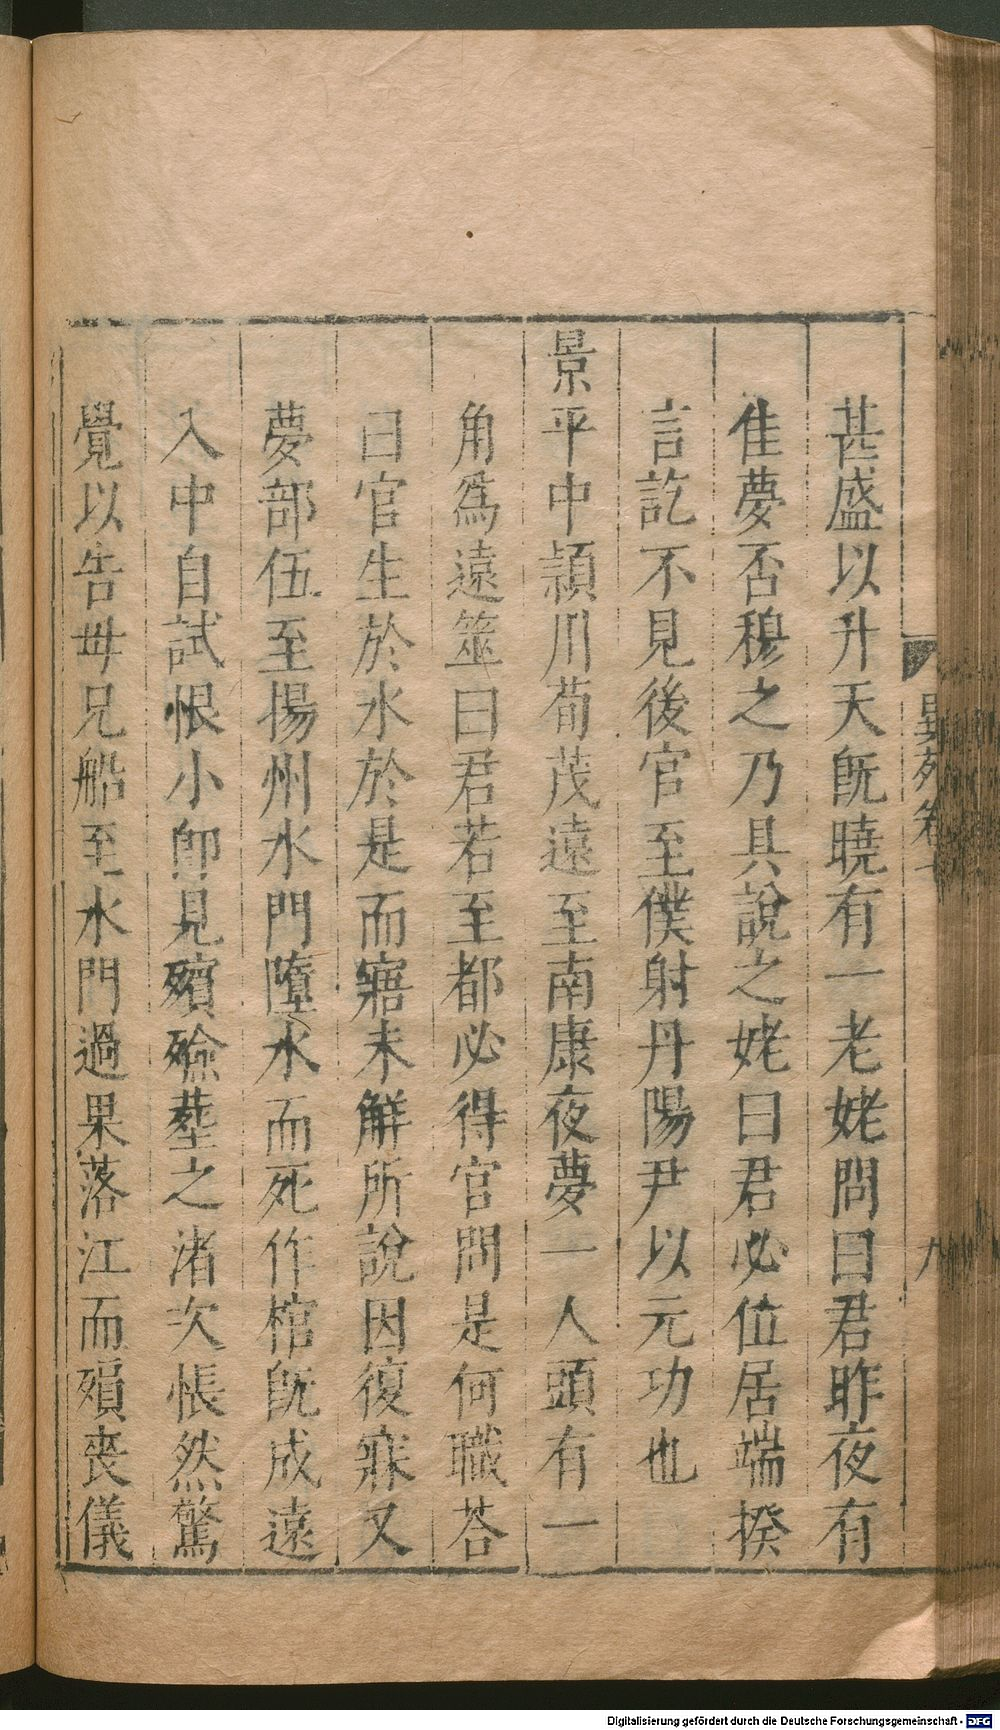 甚盛以升天旣曉有一老姥問曰君昨夜有
隹夢否穆之乃具說之姥曰君必位居端揆
言訖不見後官至僕射丹陽尹以元功也
景平中頴川荀茂遠至南康夜夢一人頭有一
角爲遠筮曰君若至都必得官問是何職荅
曰官生於水於是而寤未解所說因復寐又
夢部伍至揚州水門墮水而死作棺旣成遠
入中自試恨小卽見殯殮塟之渚次悵然驚
覺以告毋兄船至水門過果落江而殞喪儀
異苑卷七
九
Digitalisierung gefördert durch die Deutsche Forschungsgemeinschaft - DFG